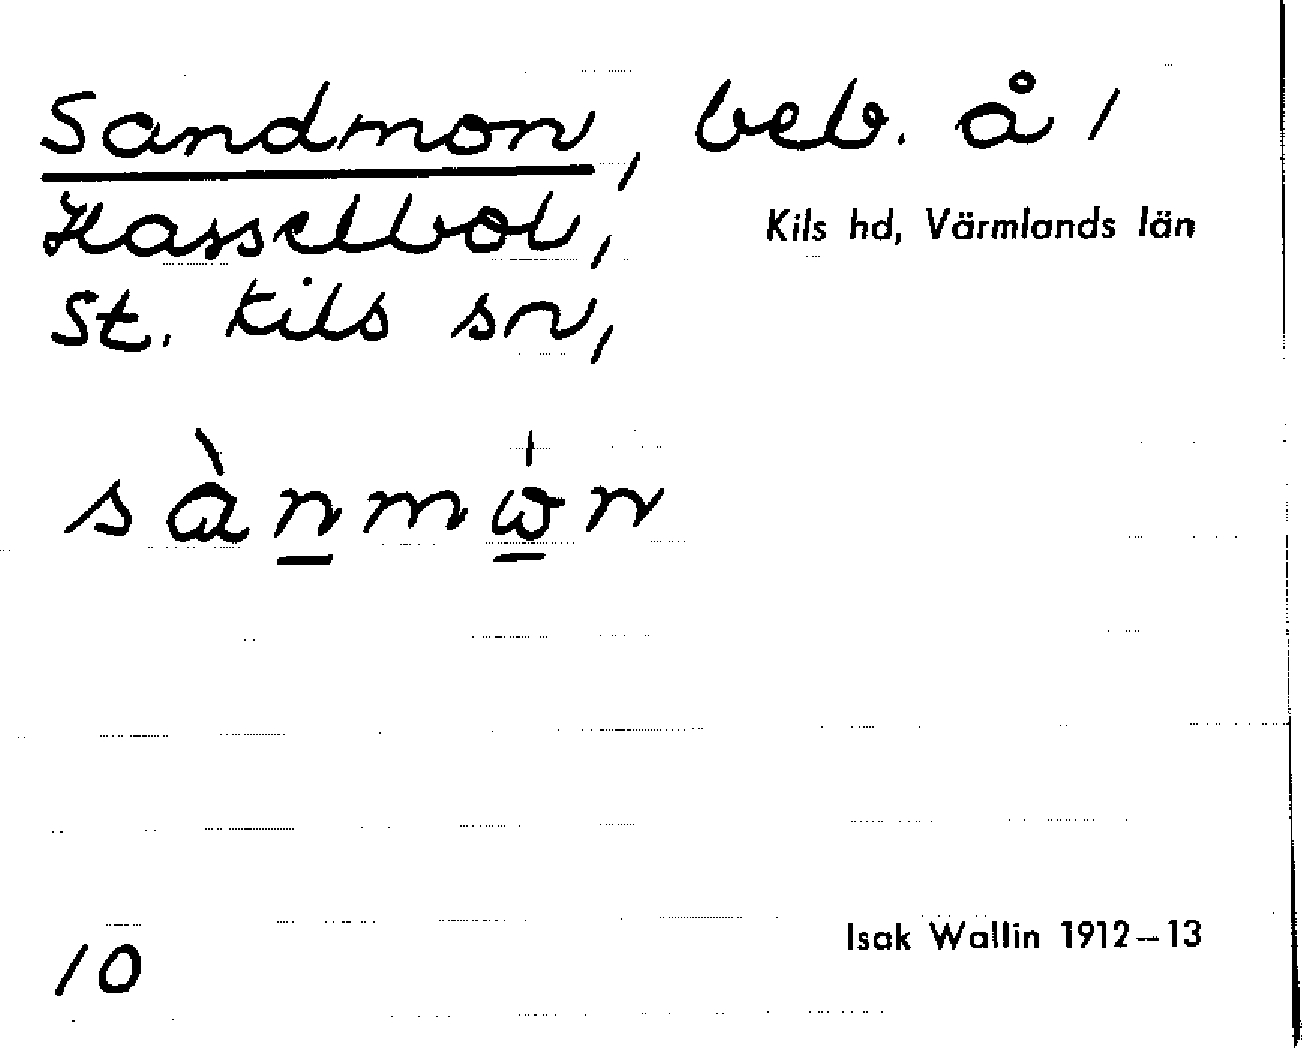 Sandmon, beb. å 1
Hasselbol, Kils hd, Värmlands län
St. Kils sn,
sànmɷ̀n
Isak Wallin 1912–13
10